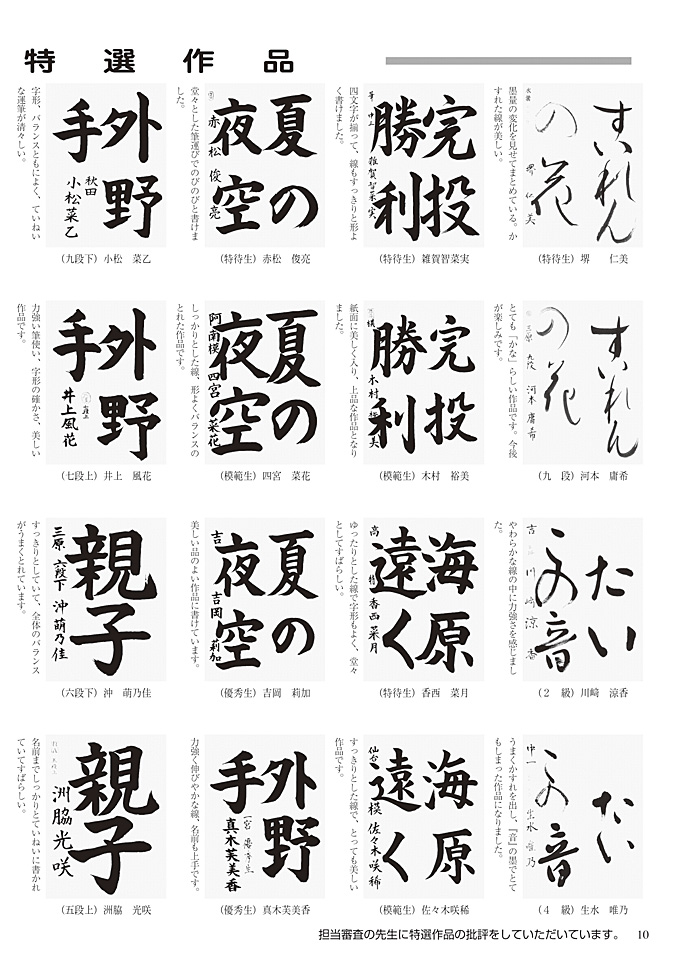 特選作品
すいれん
の花
堺 仁美
墨量の変化を見せてまとめている。か
すれた線が美しい。
(特待生) 堺 仁美
完投
勝利
雑賀智菜実
四文字が揃って、線もすっきりと形よ
く書けました。
(特待生) 雑賀智菜実
夏の
夜空
赤松 俊亮
堂々とした筆運びでのびのびと書けま
した。
(特待生) 赤松 俊亮
外野
手
秋田
小松菜乙
字形、バランスともによく、ていねい
な運筆が清々しい。
(九段下) 小松 菜乙
すいれん
の花
三原 九段 河本庸希
とても「かな」らしい作品です。今後
が楽しみです。
(九 段) 河本 庸希
完投
勝利
木村 裕美
紙面に美しく入り、上品な作品となり
ました。
(模範生) 木村 裕美
夏の
夜空
阿南模 四宮 菜花
しっかりとした線、形よくバランスの
とれた作品です。
(模範生) 四宮 菜花
外野
手
井上風花
力強い筆使い、字形の確かさ、美しい
作品です。
(七段上) 井上 風花
たい
この音
吉 川﨑涼香
やわらかな線の中に力強さを感じまし
た。
(2 級) 川﨑 涼香
海原
遠く
高 特 香西菜月
ゆったりとした線で字形もよく、堂々
としてすばらしい。
(特待生) 香西 菜月
夏の
夜空
吉 吉岡 莉加
美しい品のよい作品に書けています。
(優秀生) 吉岡 莉加
親子
三原 六段下 沖 萌乃佳
すっきりとしていて、全体のバランス
がうまくとれています。
(六段下) 沖 萌乃佳
たい
この音
中一 生水 唯乃
うまくかすれを出し、『音』の墨でとて
もしまった作品になりました。
(4 級) 生水 唯乃
海原
遠く
仙台 模 佐々木咲稀
すっきりとした線で、とっても美しい
作品です。
(模範生) 佐々木咲稀
外野
手
真木芙美香
力強く伸びやかな線、名前も上手です。
(優秀生) 真木芙美香
親子
洲脇光咲
名前までしっかりとていねいに書かれ
ていてすばらしい。
(五段上) 洲脇 光咲
担当審査の先生に特選作品の批評をしていただいています。 10